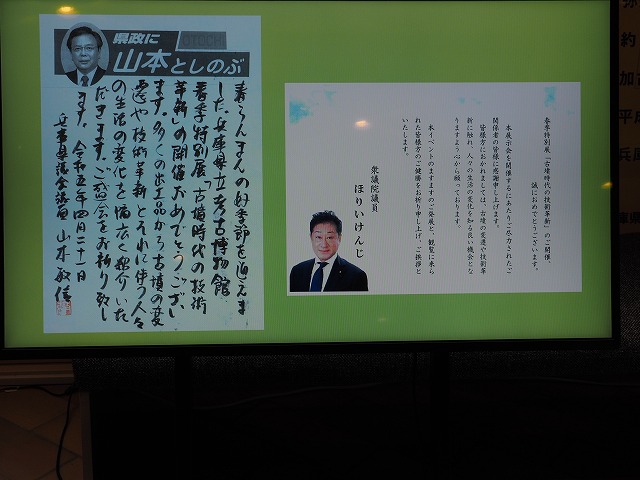 県政に
山本としのぶ
春らんまんの好季節を迎えま
した。兵庫県立考古博物館
春季特別展「古墳時代の技術
革新」の開催おめでとうござい
ます。多くの出土品から古墳の変
遷や技術革新とそれに伴う人々
の生活の変化を幅広く紹介いた
だきます。ご盛会をお祈り致し
ます。 令和五年四月二十一日
兵庫県議会議員 山本敏信
春季特別展「古墳時代の技術革新」のご開催、
誠におめでとうございます。
本展示会を開催するにあたりご尽力されたご
関係者の皆様に感謝申し上げます。
皆様方におかれましては、古墳の変遷や技術革
新に触れ、人々の生活の変化を知る良い機会とな
りますよう心から願っております。
本イベントのますますのご発展と、観覧に来ら
れた皆様方のご健勝をお祈り申し上げ、ご挨拶と
いたします。
衆議院議員
ほりいけんじ
約
加古
平成
兵庫